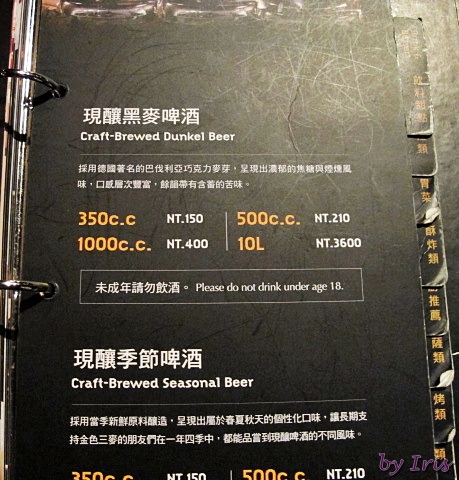 現釀黑麥啤酒
Craft-Brewed Dunkel Beer
採用德國著名的巴伐利亞巧克力麥芽，呈現出濃郁的焦糖與煙燻風
味，口感層次豐富，餘韻帶有含蓄的苦味。
350c.c NT.150 500c.c. NT.210
1000c.c. NT.400 10L NT.3600
未成年請勿飲酒。 Please do not drink under age 18.
現釀季節啤酒
Craft-Brewed Seasonal Beer
採用當季新鮮原料釀造，呈現出屬於春夏秋天的個性化口味，讓長期支
持金色三麥的朋友們在一年四季中，都能品嘗到現釀啤酒的不同風味。
350c.c NT.150 500c.c. NT.210
飲料甜點
類
冒菜
酥炸類
推薦
薩類
烤類
類
by Iris